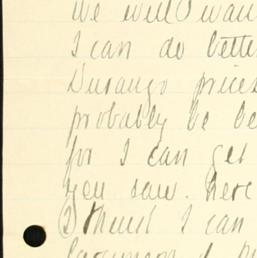 We will wan
I can do bette
Durango prices
probably be be
for I can get
you saw. here
I think I can